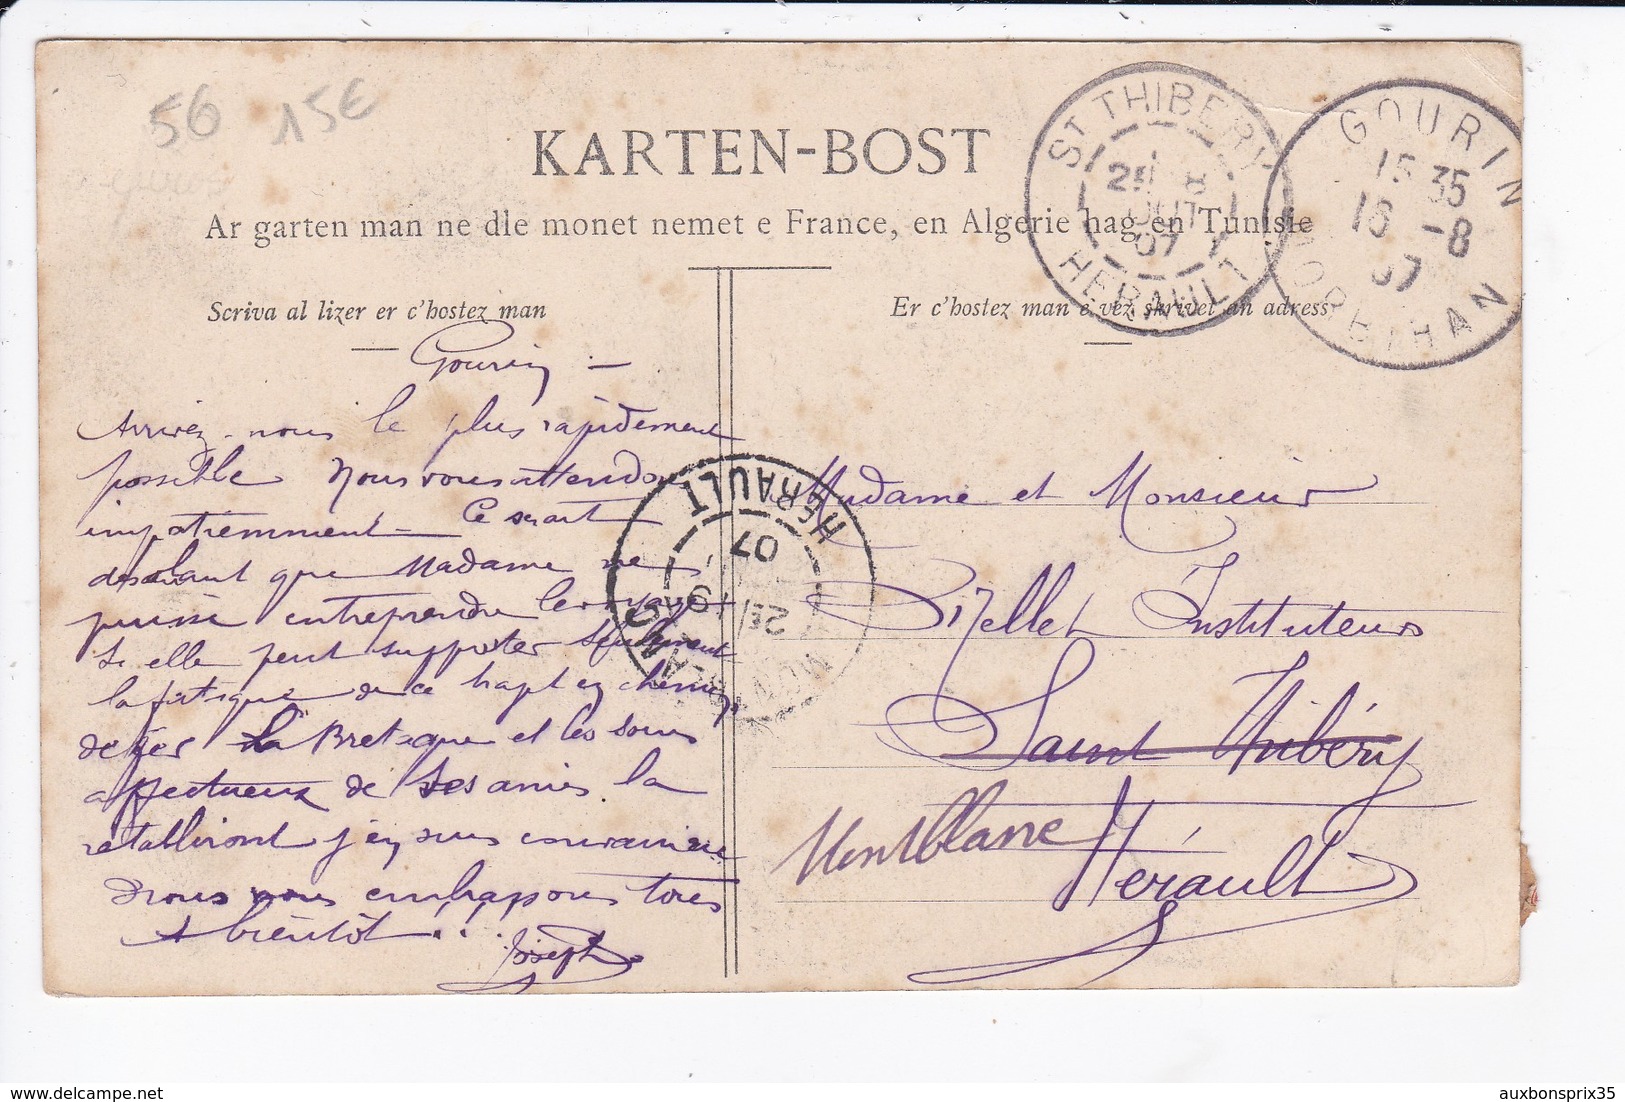 56 15€
KARTEN-BOST
Ar garten man ne dle monet nemet e France, en Algerie hag en Tunisie
ST THIBERY
18
07
HERAULT
GOURIN
15 35
16 -8
07
MORBIHAN
Scriva al lizer er c'hostez man
Er c'hostez man e vez skrivet an adress
Gourin –
Arrivez-nous le plus rapidement
possible Nous vous attendons
impatiemment – Ce serait
désolant que Madame ne
puisse entreprendre le voyage
Si elle peut supporter seulement
la fatigue de ce trajet en chemin
de fer la Bretagne et les soins
affectueux de ses amis la
rétabliront j'en suis convaincu
nous vous embrassons tous
A bientôt !!!
Joseph
HERAULT
07
Madame et Monsieur
Instituteurs
Saint Thibéry
Montblanc Hérault
auxbonsprix35